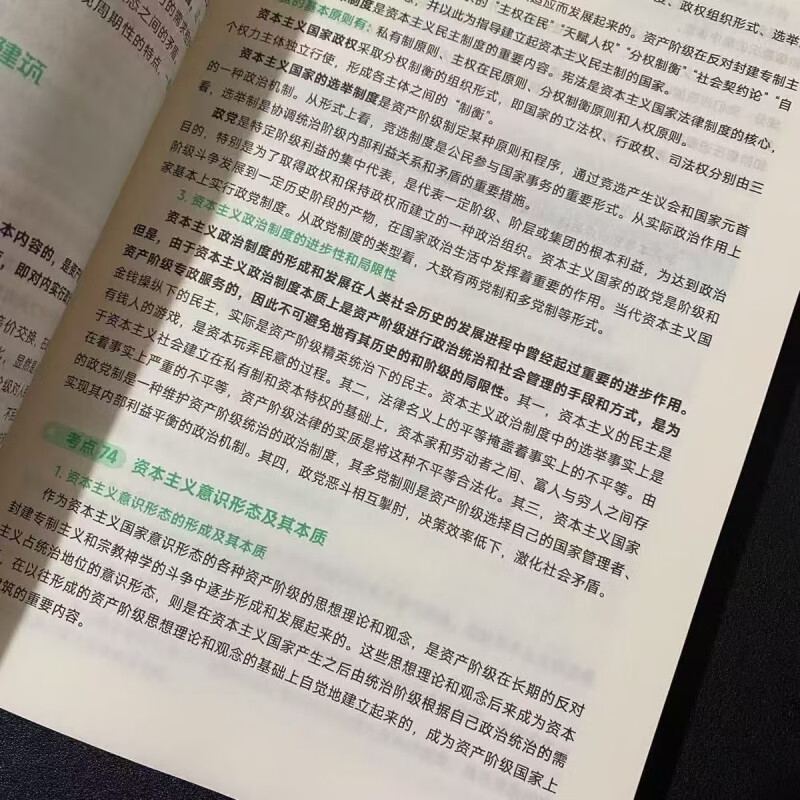 建筑
适应而发展起来的。资产阶级在反对封建专制主
的“主权在民”“天赋人权”“分权制衡”“社会契约论”“自
，并以此为指导建立起资本主义民主制的国家。
制度是资本主义民主制度的重要内容。宪法是资本主义国家法律制度的核心，
的基本原则有：私有制原则、主权在民原则、分权制衡原则和人权原则。
资本主义国家政权采取分权制衡的组织形式，即国家的立法权、行政权、司法权分别由三
个权力主体独立行使，形成各主体之间的“制衡”。
资本主义国家的选举制度是资产阶级制定某种原则和程序，通过竞选产生议会和国家元首
的一种政治机制。从形式上看，竞选制度是公民参与国家事务的重要形式。从实际政治作用上
看，选举制是协调统治阶级内部利益关系和矛盾的重要措施。
政党是特定阶级利益的集中代表，是代表一定阶级、阶层或集团的根本利益，为达到政治
目的，特别是为了取得政权和保持政权而建立的一种政治组织。资本主义国家的政党是阶级和
阶级斗争发展到一定历史阶段的产物，在国家政治生活中发挥着重要的作用。当代资本主义国
家基本上实行政党制度。从政党制度的类型看，大致有两党制和多党制等形式。
3. 资本主义政治制度的进步性和局限性
资本主义政治制度的形成和发展在人类社会历史的发展进程中曾经起过重要的进步作用。
但是，由于资本主义政治制度本质上是资产阶级进行政治统治和社会管理的手段和方式，是为
资产阶级专政服务的，因此不可避免地有其历史的和阶级的局限性。其一，资本主义的民主是
金钱操纵下的民主，实际是资产阶级精英统治下的民主。资本主义政治制度中的选举事实上是
有钱人的游戏，是资本玩弄民意的过程。其二，法律名义上的平等掩盖着事实上的不平等。由
于资本主义社会建立在私有制和资本特权的基础上，资本家和劳动者之间、富人与穷人之间存
在着事实上严重的不平等，资产阶级法律的实质是将这种不平等合法化。其三，资本主义国家
的政党制是一种维护资产阶级统治的政治制度，其多党制则是资产阶级选择自己的国家管理者、
实现其内部利益平衡的政治机制。其四，政党恶斗相互掣肘，决策效率低下，激化社会矛盾。
考点74 资本主义意识形态及其本质
1. 资本主义意识形态的形成及其本质
作为资本主义国家意识形态的各种资产阶级的思想理论和观念，是资产阶级在长期的反对
封建专制主义和宗教神学的斗争中逐步形成和发展起来的。这些思想理论和观念后来成为资本
主义占统治地位的意识形态，则是在资本主义国家产生之后由统治阶级根据自己政治统治的需
，在以往形成的资产阶级思想理论和观念的基础上自觉地建立起来的，成为资产阶级国家上
建筑的重要内容。